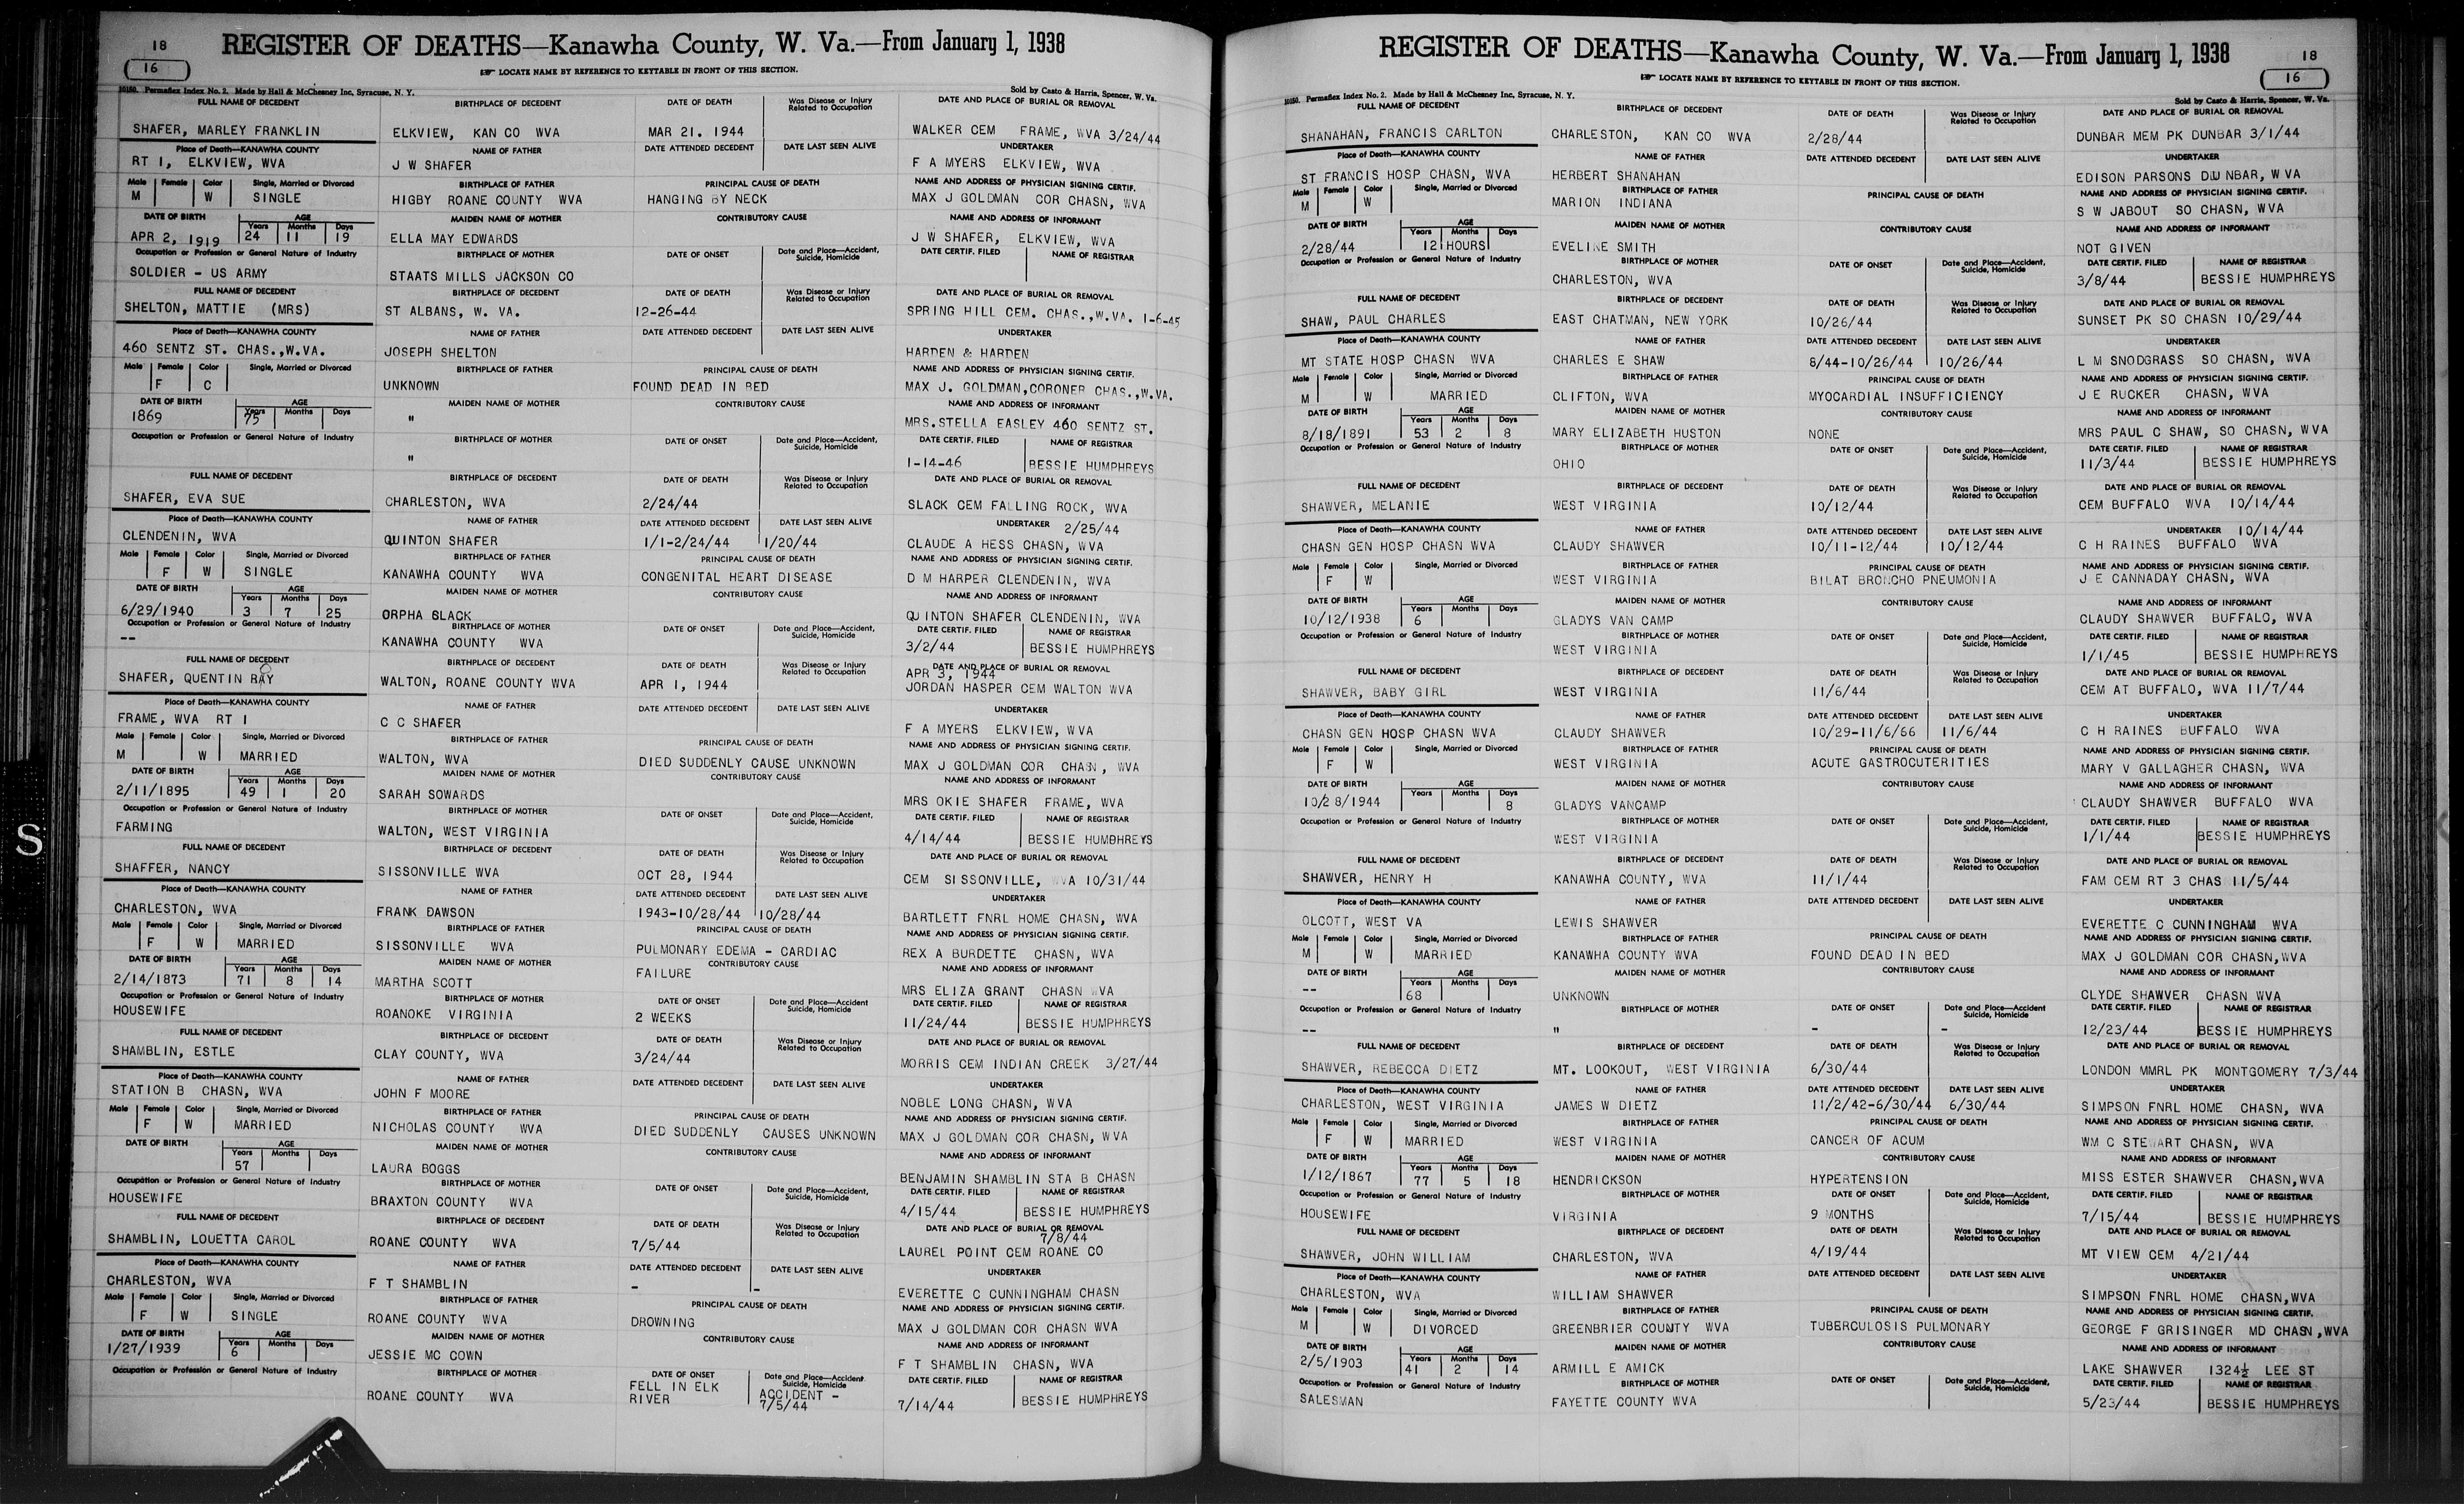 18
16
REGISTER OF DEATHS—Kanawha County, W. Va.—From January 1, 1938
LOCATE NAME BY REFERENCE TO KEYTABLE IN FRONT OF THIS SECTION.
10150. Permaflex Index No. 2. Made by Hall & McChesney Inc, Syracuse, N. Y. Sold by Casto & Harris, Spencer, W. Va.
FULL NAME OF DECEDENT BIRTHPLACE OF DECEDENT DATE OF DEATH Was Disease or Injury Related to Occupation DATE AND PLACE OF BURIAL OR REMOVAL
SHAFER, MARLEY FRANKLIN ELKVIEW, KAN CO WVA MAR 21. 1944 WALKER CEM FRAME, WVA 3/24/44
Place of Death—KANAWHA COUNTY NAME OF FATHER DATE ATTENDED DECEDENT DATE LAST SEEN ALIVE UNDERTAKER
RT 1, ELKVIEW, WVA J W SHAFER F A MYERS ELKVIEW, WVA
Male Female Color Single, Married or Divorced BIRTHPLACE OF FATHER PRINCIPAL CAUSE OF DEATH NAME AND ADDRESS OF PHYSICIAN SIGNING CERTIF.
M W SINGLE HIGBY ROANE COUNTY WVA HANGING BY NECK MAX J GOLDMAN COR CHASN, WVA
DATE OF BIRTH AGE Years Months Days MAIDEN NAME OF MOTHER CONTRIBUTORY CAUSE NAME AND ADDRESS OF INFORMANT
APR 2, 1919 24 11 19 ELLA MAY EDWARDS J W SHAFER, ELKVIEW, WVA
Occupation or Profession or General Nature of Industry BIRTHPLACE OF MOTHER DATE OF ONSET Date and Place—Accident, Suicide, Homicide DATE CERTIF. FILED NAME OF REGISTRAR
SOLDIER - US ARMY STAATS MILLS JACKSON CO
FULL NAME OF DECEDENT BIRTHPLACE OF DECEDENT DATE OF DEATH Was Disease or Injury Related to Occupation DATE AND PLACE OF BURIAL OR REMOVAL
SHELTON, MATTIE (MRS) ST ALBANS, W. VA. 12-26-44 SPRING HILL CEM. CHAS.,W.VA. 1-6-45
Place of Death—KANAWHA COUNTY NAME OF FATHER DATE ATTENDED DECEDENT DATE LAST SEEN ALIVE UNDERTAKER
460 SENTZ ST. CHAS.,W.VA. JOSEPH SHELTON HARDEN & HARDEN
Male Female Color Single, Married or Divorced BIRTHPLACE OF FATHER PRINCIPAL CAUSE OF DEATH NAME AND ADDRESS OF PHYSICIAN SIGNING CERTIF.
F C UNKNOWN FOUND DEAD IN BED MAX J. GOLDMAN,CORONER CHAS.,W.VA.
DATE OF BIRTH AGE Years Months Days MAIDEN NAME OF MOTHER CONTRIBUTORY CAUSE NAME AND ADDRESS OF INFORMANT
1869 75 " MRS.STELLA EASLEY 460 SENTZ ST.
Occupation or Profession or General Nature of Industry BIRTHPLACE OF MOTHER DATE OF ONSET Date and Place—Accident, Suicide, Homicide DATE CERTIF. FILED NAME OF REGISTRAR
" 1-14-46 BESSIE HUMPHREYS
FULL NAME OF DECEDENT BIRTHPLACE OF DECEDENT DATE OF DEATH Was Disease or Injury Related to Occupation DATE AND PLACE OF BURIAL OR REMOVAL
SHAFER, EVA SUE CHARLESTON, WVA 2/24/44 SLACK CEM FALLING ROCK, WVA
Place of Death—KANAWHA COUNTY NAME OF FATHER DATE ATTENDED DECEDENT DATE LAST SEEN ALIVE UNDERTAKER 2/25/44
CLENDENIN, WVA QUINTON SHAFER 1/1-2/24/44 1/20/44 CLAUDE A HESS CHASN, WVA
Male Female Color Single, Married or Divorced BIRTHPLACE OF FATHER PRINCIPAL CAUSE OF DEATH NAME AND ADDRESS OF PHYSICIAN SIGNING CERTIF.
F W SINGLE KANAWHA COUNTY WVA CONGENITAL HEART DISEASE D M HARPER CLENDENIN, WVA
DATE OF BIRTH AGE Years Months Days MAIDEN NAME OF MOTHER CONTRIBUTORY CAUSE NAME AND ADDRESS OF INFORMANT
6/29/1940 3 7 25 ORPHA SLACK QUINTON SHAFER CLENDENIN, WVA
Occupation or Profession or General Nature of Industry BIRTHPLACE OF MOTHER DATE OF ONSET Date and Place—Accident, Suicide, Homicide DATE CERTIF. FILED NAME OF REGISTRAR
-- KANAWHA COUNTY WVA 3/2/44 BESSIE HUMPHREYS
FULL NAME OF DECEDENT BIRTHPLACE OF DECEDENT DATE OF DEATH Was Disease or Injury Related to Occupation DATE AND PLACE OF BURIAL OR REMOVAL
SHAFER, QUENTIN RAY WALTON, ROANE COUNTY WVA APR 1, 1944 APR 3, 1944 JORDAN HASPER CEM WALTON WVA
Place of Death—KANAWHA COUNTY NAME OF FATHER DATE ATTENDED DECEDENT DATE LAST SEEN ALIVE UNDERTAKER
FRAME, WVA RT 1 C C SHAFER F A MYERS ELKVIEW, WVA
Male Female Color Single, Married or Divorced BIRTHPLACE OF FATHER PRINCIPAL CAUSE OF DEATH NAME AND ADDRESS OF PHYSICIAN SIGNING CERTIF.
M W MARRIED WALTON, WVA DIED SUDDENLY CAUSE UNKNOWN MAX J GOLDMAN COR CHASN, WVA
DATE OF BIRTH AGE Years Months Days MAIDEN NAME OF MOTHER CONTRIBUTORY CAUSE NAME AND ADDRESS OF INFORMANT
2/11/1895 49 1 20 SARAH SOWARDS MRS OKIE SHAFER FRAME, WVA
Occupation or Profession or General Nature of Industry BIRTHPLACE OF MOTHER DATE OF ONSET Date and Place—Accident, Suicide, Homicide DATE CERTIF. FILED NAME OF REGISTRAR
FARMING WALTON, WEST VIRGINIA 4/14/44 BESSIE HUMPHREYS
FULL NAME OF DECEDENT BIRTHPLACE OF DECEDENT DATE OF DEATH Was Disease or Injury Related to Occupation DATE AND PLACE OF BURIAL OR REMOVAL
SHAFFER, NANCY SISSONVILLE WVA OCT 28, 1944 CEM SISSONVILLE, WVA 10/31/44
Place of Death—KANAWHA COUNTY NAME OF FATHER DATE ATTENDED DECEDENT DATE LAST SEEN ALIVE UNDERTAKER
CHARLESTON, WVA FRANK DAWSON 1943-10/28/44 10/28/44 BARTLETT FNRL HOME CHASN, WVA
Male Female Color Single, Married or Divorced BIRTHPLACE OF FATHER PRINCIPAL CAUSE OF DEATH NAME AND ADDRESS OF PHYSICIAN SIGNING CERTIF.
F W MARRIED SISSONVILLE WVA PULMONARY EDEMA - CARDIAC REX A BURDETTE CHASN, WVA
DATE OF BIRTH AGE Years Months Days MAIDEN NAME OF MOTHER CONTRIBUTORY CAUSE NAME AND ADDRESS OF INFORMANT
2/14/1873 71 8 14 MARTHA SCOTT FAILURE MRS ELIZA GRANT CHASN WVA
Occupation or Profession or General Nature of Industry BIRTHPLACE OF MOTHER DATE OF ONSET Date and Place—Accident Suicide, Homicide DATE CERTIF. FILED NAME OF REGISTRAR
HOUSEWIFE ROANOKE VIRGINIA 2 WEEKS 11/24/44 BESSIE HUMPHREYS
FULL NAME OF DECEDENT BIRTHPLACE OF DECEDENT DATE OF DEATH Was Disease or Injury Related to Occupation DATE AND PLACE OF BURIAL OR REMOVAL
SHAMBLIN, ESTLE CLAY COUNTY, WVA 3/24/44 MORRIS CEM INDIAN CREEK 3/27/44
Place of Death—KANAWHA COUNTY NAME OF FATHER DATE ATTENDED DECEDENT DATE LAST SEEN ALIVE UNDERTAKER
STATION B CHASN, WVA JOHN F MOORE NOBLE LONG CHASN, WVA
Male Female Color Single, Married or Divorced BIRTHPLACE OF FATHER PRINCIPAL CAUSE OF DEATH NAME AND ADDRESS OF PHYSICIAN SIGNING CERTIF.
F W MARRIED NICHOLAS COUNTY WVA DIED SUDDENLY CAUSES UNKNOWN MAX J GOLDMAN COR CHASN, WVA
DATE OF BIRTH AGE Years Months Days MAIDEN NAME OF MOTHER CONTRIBUTORY CAUSE NAME AND ADDRESS OF INFORMANT
57 LAURA BOGGS BENJAMIN SHAMBLIN STA B CHASN
Occupation or Profession or General Nature of Industry BIRTHPLACE OF MOTHER DATE OF ONSET Date and Place—Accident, Suicide, Homicide DATE CERTIF. FILED NAME OF REGISTRAR
HOUSEWIFE BRAXTON COUNTY WVA 4/15/44 BESSIE HUMPHREYS
FULL NAME OF DECEDENT BIRTHPLACE OF DECEDENT DATE OF DEATH Was Disease or Injury Related to Occupation DATE AND PLACE OF BURIAL OR REMOVAL
SHAMBLIN, LOUETTA CAROL ROANE COUNTY WVA 7/5/44 7/8/44 LAUREL POINT CEM ROANE CO
Place of Death—KANAWHA COUNTY NAME OF FATHER DATE ATTENDED DECEDENT DATE LAST SEEN ALIVE UNDERTAKER
CHARLESTON, WVA F T SHAMBLIN - - EVERETTE C CUNNINGHAM CHASN
Male Female Color Single, Married or Divorced BIRTHPLACE OF FATHER PRINCIPAL CAUSE OF DEATH NAME AND ADDRESS OF PHYSICIAN SIGNING CERTIF.
F W SINGLE ROANE COUNTY WVA DROWNING MAX J GOLDMAN COR CHASN WVA
DATE OF BIRTH AGE Years Months Days MAIDEN NAME OF MOTHER CONTRIBUTORY CAUSE NAME AND ADDRESS OF INFORMANT
1/27/1939 6 JESSIE MC COWN F T SHAMBLIN CHASN, WVA
Occupation or Profession or General Nature of Industry BIRTHPLACE OF MOTHER DATE OF ONSET Date and Place—Accident Suicide, Homicide DATE CERTIF. FILED NAME OF REGISTRAR
ROANE COUNTY WVA FELL IN ELK RIVER ACCIDENT - 7/5/44 7/14/44 BESSIE HUMPHREYS
S
REGISTER OF DEATHS—Kanawha County, W. Va.—From January 1, 1938
18
16
LOCATE NAME BY REFERENCE TO KEYTABLE IN FRONT OF THIS SECTION.
10150. Permaflex Index No. 2. Made by Hall & McChesney Inc, Syracuse, N. Y. Sold by Casto & Harris, Spencer, W. Va.
FULL NAME OF DECEDENT BIRTHPLACE OF DECEDENT DATE OF DEATH Was Disease or Injury Related to Occupation DATE AND PLACE OF BURIAL OR REMOVAL
SHANAHAN, FRANCIS CARLTON CHARLESTON, KAN CO WVA 2/28/44 DUNBAR MEM PK DUNBAR 3/1/44
Place of Death—KANAWHA COUNTY NAME OF FATHER DATE ATTENDED DECEDENT DATE LAST SEEN ALIVE UNDERTAKER
ST FRANCIS HOSP CHASN, WVA HERBERT SHANAHAN EDISON PARSONS DUNBAR, W VA
Male Female Color Single, Married or Divorced BIRTHPLACE OF FATHER PRINCIPAL CAUSE OF DEATH NAME AND ADDRESS OF PHYSICIAN SIGNING CERTIF.
M W MARION INDIANA S W JABOUT SO CHASN, WVA
DATE OF BIRTH AGE Years Months Days MAIDEN NAME OF MOTHER CONTRIBUTORY CAUSE NAME AND ADDRESS OF INFORMANT
2/28/44 12 HOURS EVELINE SMITH NOT GIVEN
Occupation or Profession or General Nature of Industry BIRTHPLACE OF MOTHER DATE OF ONSET Date and Place—Accident, Suicide, Homicide DATE CERTIF. FILED NAME OF REGISTRAR
CHARLESTON, WVA 3/8/44 BESSIE HUMPHREYS
FULL NAME OF DECEDENT BIRTHPLACE OF DECEDENT DATE OF DEATH Was Disease or Injury Related to Occupation DATE AND PLACE OF BURIAL OR REMOVAL
SHAW, PAUL CHARLES EAST CHATMAN, NEW YORK 10/26/44 SUNSET PK SO CHASN 10/29/44
Place of Death—KANAWHA COUNTY NAME OF FATHER DATE ATTENDED DECEDENT DATE LAST SEEN ALIVE UNDERTAKER
MT STATE HOSP CHASN WVA CHARLES E SHAW 8/44-10/26/44 10/26/44 L M SNODGRASS SO CHASN, WVA
Male Female Color Single, Married or Divorced BIRTHPLACE OF FATHER PRINCIPAL CAUSE OF DEATH NAME AND ADDRESS OF PHYSICIAN SIGNING CERTIF.
M W MARRIED CLIFTON, WVA MYOCARDIAL INSUFFICIENCY J E RUCKER CHASN, WVA
DATE OF BIRTH AGE Years Months Days MAIDEN NAME OF MOTHER CONTRIBUTORY CAUSE NAME AND ADDRESS OF INFORMANT
8/18/1891 53 2 8 MARY ELIZABETH HUSTON NONE MRS PAUL C SHAW, SO CHASN, WVA
Occupation or Profession or General Nature of Industry BIRTHPLACE OF MOTHER DATE OF ONSET Date and Place—Accident, Suicide, Homicide DATE CERTIF. FILED NAME OF REGISTRAR
OHIO 11/3/44 BESSIE HUMPHREYS
FULL NAME OF DECEDENT BIRTHPLACE OF DECEDENT DATE OF DEATH Was Disease or Injury Related to Occupation DATE AND PLACE OF BURIAL OR REMOVAL
SHAWVER, MELANIE WEST VIRGINIA 10/12/44 CEM BUFFALO WVA 10/14/44
Place of Death—KANAWHA COUNTY NAME OF FATHER DATE ATTENDED DECEDENT DATE LAST SEEN ALIVE UNDERTAKER 10/14/44
CHASN GEN HOSP CHASN WVA CLAUDY SHAWVER 10/11-12/44 10/12/44 C H RAINES BUFFALO WVA
Male Female Color Single, Married or Divorced BIRTHPLACE OF FATHER PRINCIPAL CAUSE OF DEATH NAME AND ADDRESS OF PHYSICIAN SIGNING CERTIF.
F W WEST VIRGINIA BILAT BRONCHO PNEUMONIA J E CANNADAY CHASN, WVA
DATE OF BIRTH AGE Years Months Days MAIDEN NAME OF MOTHER CONTRIBUTORY CAUSE NAME AND ADDRESS OF INFORMANT
10/12/1938 6 GLADYS VAN CAMP CLAUDY SHAWVER BUFFALO, WVA
Occupation or Profession or General Nature of Industry BIRTHPLACE OF MOTHER DATE OF ONSET Date and Place—Accident, Suicide, Homicide DATE CERTIF. FILED NAME OF REGISTRAR
WEST VIRGINIA 1/1/45 BESSIE HUMPHREYS
FULL NAME OF DECEDENT BIRTHPLACE OF DECEDENT DATE OF DEATH Was Disease or Injury Related to Occupation DATE AND PLACE OF BURIAL OR REMOVAL
SHAWVER, BABY GIRL WEST VIRGINIA 11/6/44 CEM AT BUFFALO, WVA 11/7/44
Place of Death—KANAWHA COUNTY NAME OF FATHER DATE ATTENDED DECEDENT DATE LAST SEEN ALIVE UNDERTAKER
CHASN GEN HOSP CHASN WVA CLAUDY SHAWVER 10/29-11/6/66 11/6/44 C H RAINES BUFFALO WVA
Male Female Color Single, Married or Divorced BIRTHPLACE OF FATHER PRINCIPAL CAUSE OF DEATH NAME AND ADDRESS OF PHYSICIAN SIGNING CERTIF.
F W WEST VIRGINIA ACUTE GASTROCUTERITIES MARY V GALLAGHER CHASN, WVA
DATE OF BIRTH AGE Years Months Days MAIDEN NAME OF MOTHER CONTRIBUTORY CAUSE NAME AND ADDRESS OF INFORMANT
10/28/1944 8 GLADYS VANCAMP CLAUDY SHAWVER BUFFALO WVA
Occupation or Profession or General Nature of Industry BIRTHPLACE OF MOTHER DATE OF ONSET Date and Place—Accident, Suicide, Homicide DATE CERTIF. FILED NAME OF REGISTRAR
WEST VIRGINIA 1/1/44 BESSIE HUMPHREYS
FULL NAME OF DECEDENT BIRTHPLACE OF DECEDENT DATE OF DEATH Was Disease or Injury Related to Occupation DATE AND PLACE OF BURIAL OR REMOVAL
SHAWVER, HENRY H KANAWHA COUNTY, WVA 11/1/44 FAM CEM RT 3 CHAS 11/5/44
Place of Death—KANAWHA COUNTY NAME OF FATHER DATE ATTENDED DECEDENT DATE LAST SEEN ALIVE UNDERTAKER
OLCOTT, WEST VA LEWIS SHAWVER EVERETTE C CUNNINGHAM WVA
Male Female Color Single, Married or Divorced BIRTHPLACE OF FATHER PRINCIPAL CAUSE OF DEATH NAME AND ADDRESS OF PHYSICIAN SIGNING CERTIF.
M W MARRIED KANAWHA COUNTY WVA FOUND DEAD IN BED MAX J GOLDMAN COR CHASN,WVA
DATE OF BIRTH AGE Years Months Days MAIDEN NAME OF MOTHER CONTRIBUTORY CAUSE NAME AND ADDRESS OF INFORMANT
-- 68 UNKNOWN CLYDE SHAWVER CHASN WVA
Occupation or Profession or General Nature of Industry BIRTHPLACE OF MOTHER DATE OF ONSET Date and Place—Accident, Suicide, Homicide DATE CERTIF. FILED NAME OF REGISTRAR
-- " - - 12/23/44 BESSIE HUMPHREYS
FULL NAME OF DECEDENT BIRTHPLACE OF DECEDENT DATE OF DEATH Was Disease or Injury Related to Occupation DATE AND PLACE OF BURIAL OR REMOVAL
SHAWVER, REBECCA DIETZ MT. LOOKOUT, WEST VIRGINIA 6/30/44 LONDON MMRL PK MONTGOMERY 7/3/44
Place of Death—KANAWHA COUNTY NAME OF FATHER DATE ATTENDED DECEDENT DATE LAST SEEN ALIVE UNDERTAKER
CHARLESTON, WEST VIRGINIA JAMES W DIETZ 11/2/42-6/30/44 6/30/44 SIMPSON FNRL HOME CHASN, WVA
Male Female Color Single, Married or Divorced BIRTHPLACE OF FATHER PRINCIPAL CAUSE OF DEATH NAME AND ADDRESS OF PHYSICIAN SIGNING CERTIF.
F W MARRIED WEST VIRGINIA CANCER OF ACUM WM C STEWART CHASN, WVA
DATE OF BIRTH AGE Years Months Days MAIDEN NAME OF MOTHER CONTRIBUTORY CAUSE NAME AND ADDRESS OF INFORMANT
1/12/1867 77 5 18 HENDRICKSON HYPERTENSION MISS ESTER SHAWVER CHASN,WVA
Occupation or Profession or General Nature of Industry BIRTHPLACE OF MOTHER DATE OF ONSET Date and Place—Accident, Suicide, Homicide DATE CERTIF. FILED NAME OF REGISTRAR
HOUSEWIFE VIRGINIA 9 MONTHS 7/15/44 BESSIE HUMPHREYS
FULL NAME OF DECEDENT BIRTHPLACE OF DECEDENT DATE OF DEATH Was Disease or Injury Related to Occupation DATE AND PLACE OF BURIAL OR REMOVAL
SHAWVER, JOHN WILLIAM CHARLESTON, WVA 4/19/44 MT VIEW CEM 4/21/44
Place of Death—KANAWHA COUNTY NAME OF FATHER DATE ATTENDED DECEDENT DATE LAST SEEN ALIVE UNDERTAKER
CHARLESTON, WVA WILLIAM SHAWVER SIMPSON FNRL HOME CHASN,WVA
Male Female Color Single, Married or Divorced BIRTHPLACE OF FATHER PRINCIPAL CAUSE OF DEATH NAME AND ADDRESS OF PHYSICIAN SIGNING CERTIF.
M W DIVORCED GREENBRIER COUNTY WVA TUBERCULOSIS PULMONARY GEORGE F GRISINGER MD CHASN,WVA
DATE OF BIRTH AGE Years Months Days MAIDEN NAME OF MOTHER CONTRIBUTORY CAUSE NAME AND ADDRESS OF INFORMANT
2/5/1903 41 2 14 ARMILL E AMICK LAKE SHAWVER 1324½ LEE ST
Occupation or Profession or General Nature of Industry BIRTHPLACE OF MOTHER DATE OF ONSET Date and Place—Accident, Suicide, Homicide DATE CERTIF. FILED NAME OF REGISTRAR
SALESMAN FAYETTE COUNTY WVA 5/23/44 BESSIE HUMPHREYS